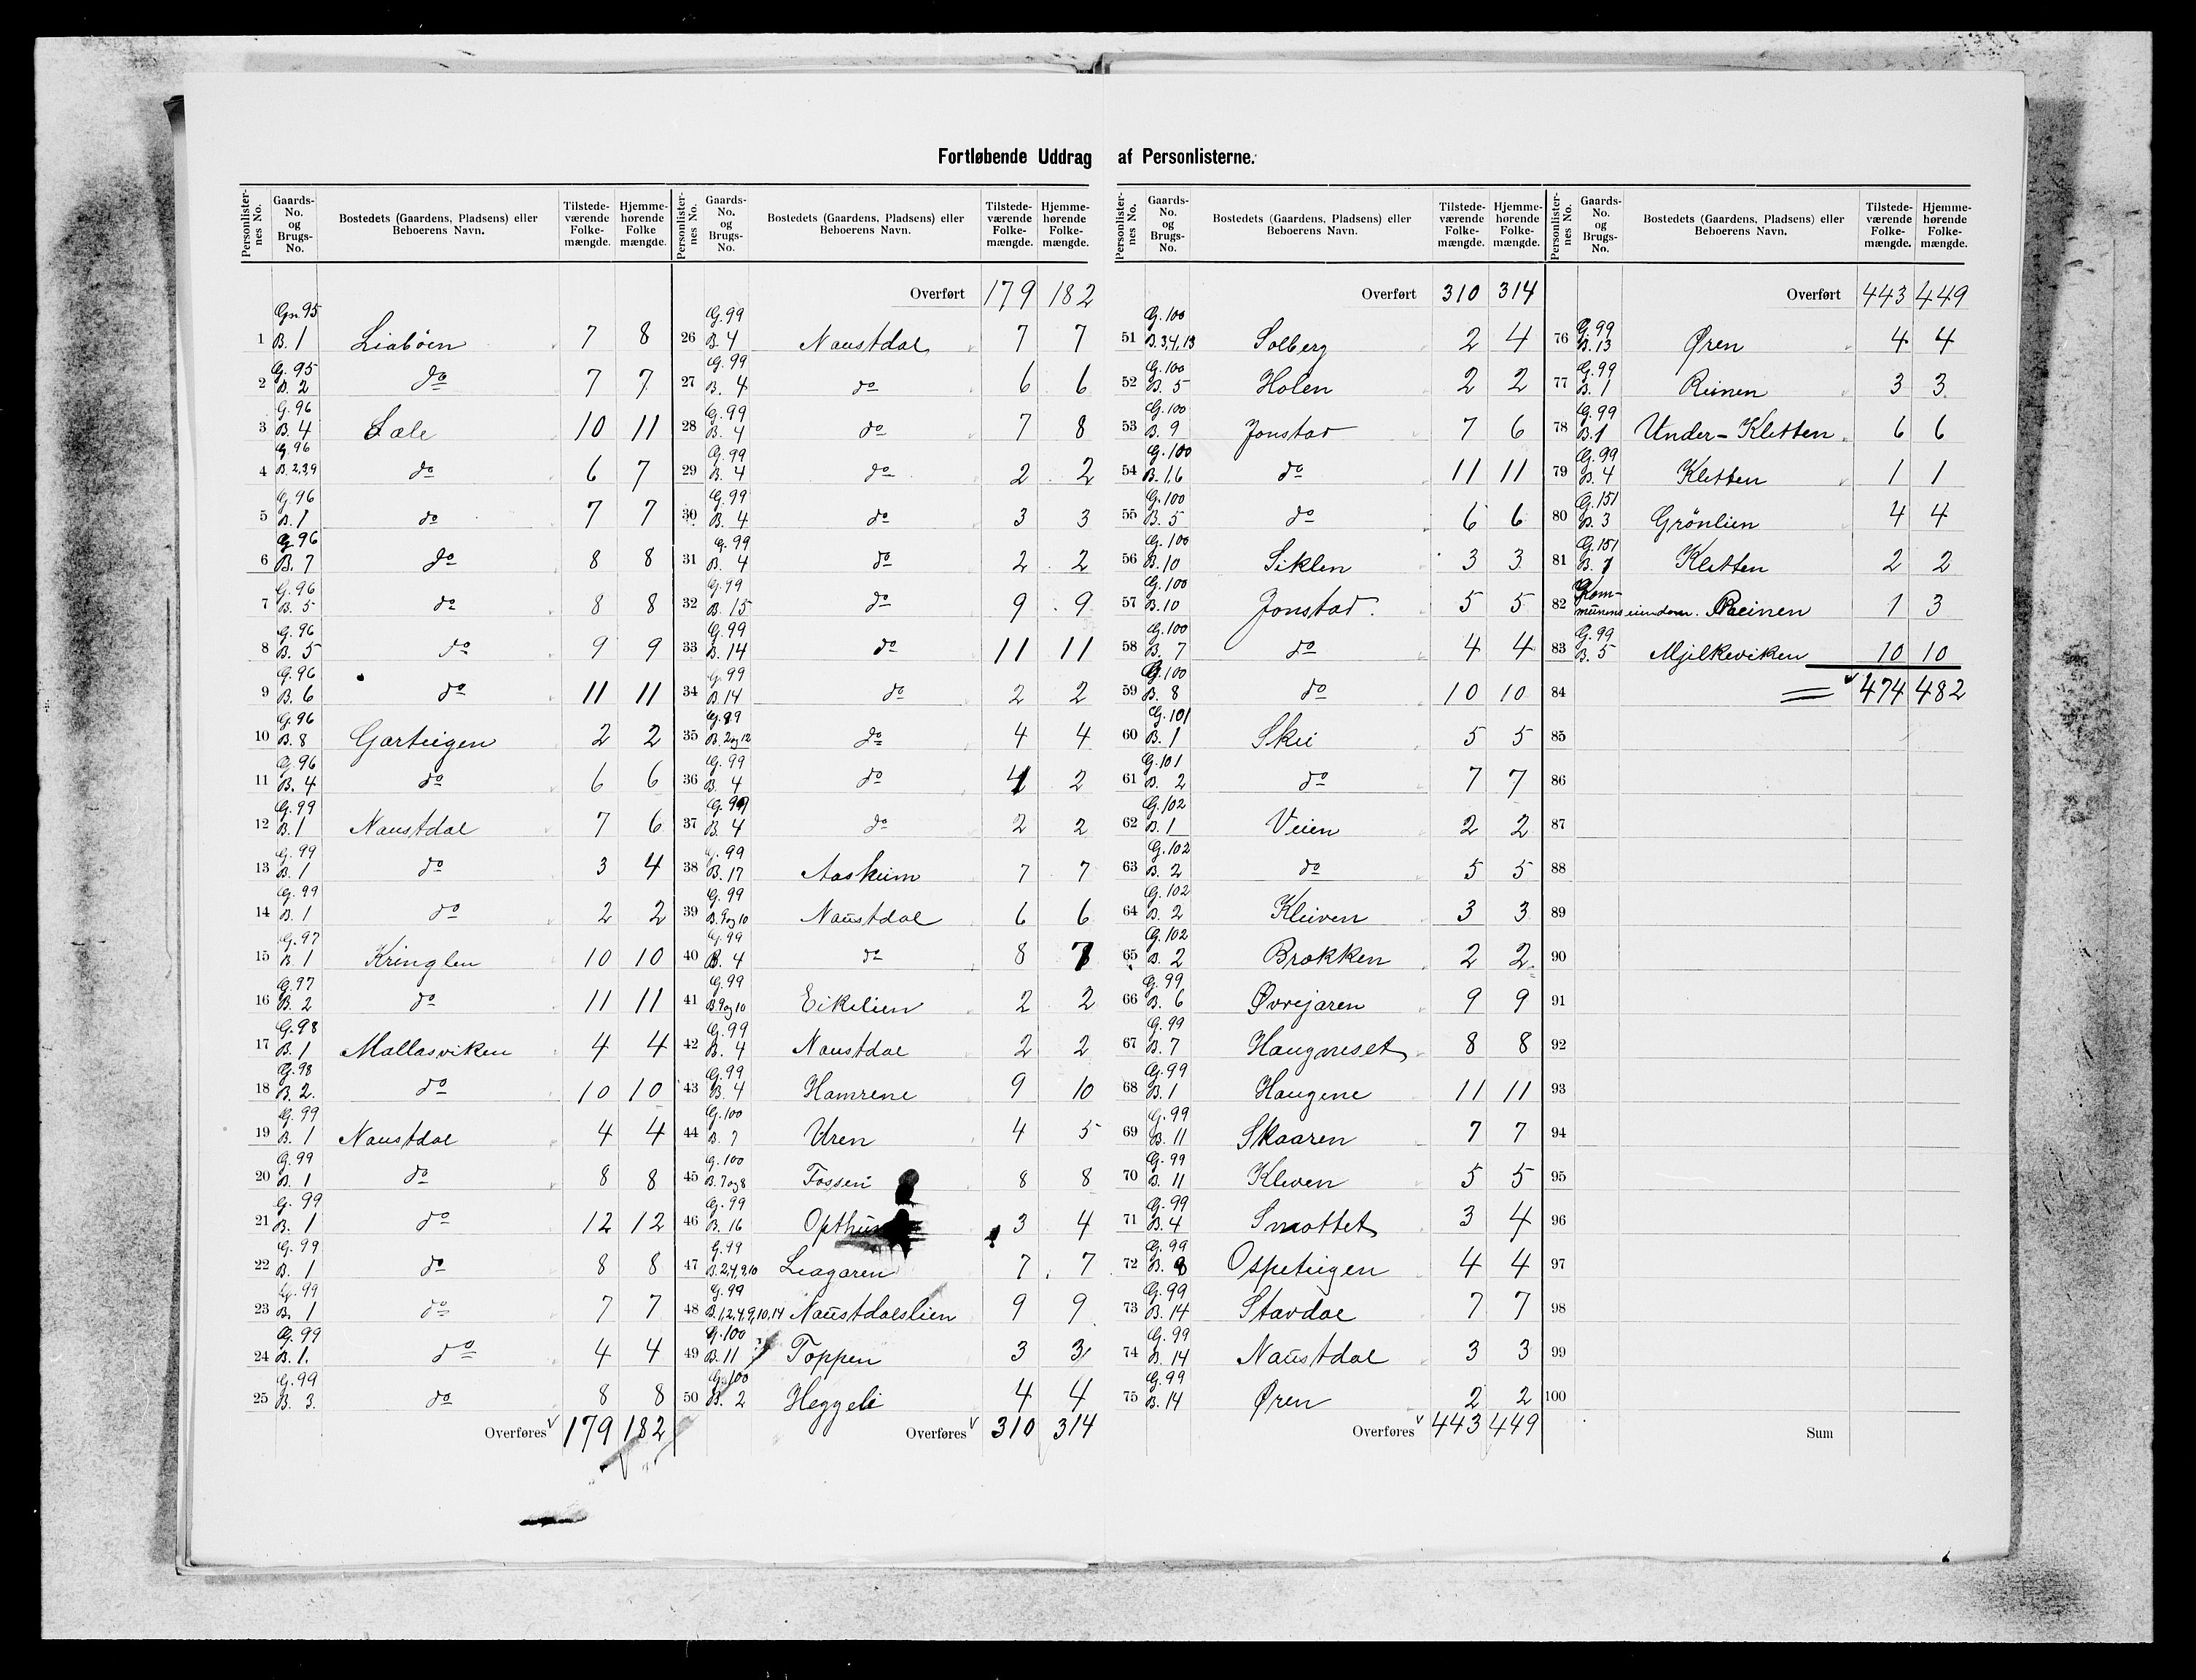 Fortløbende Uddrag af Personlisterne.
Personlisternes No. | Gaards-No. og Brugs-No. | Bostedets (Gaardens, Pladsens) eller Beboerens Navn. | Tilstedeværende Folkemængde. | Hjemmehørende Folkemængde.
1 Gn. 95 B. 1 Liabøen 7 8
2 G. 95 B. 2 do 7 7
3 G. 96 B. 4 Sæle 10 11
4 G. 96 B. 2,3,9 do 6 7
5 G. 96 B. 1 do 7 7
6 G. 96 B. 7 do 8 8
7 G. 96 B. 5 do 8 8
8 G. 96 B. 5 do 9 9
9 G. 96 B. 6 do 11 11
10 G. 96 B. 8 Garteigen 2 2
11 G. 96 B. 4 do 6 6
12 G. 99 B. 1 Naustdal 7 6
13 G. 99 B. 1 do 3 4
14 G. 99 B. 1 do 2 2
15 G. 97 B. 1 Kringlen 10 10
16 G. 97 B. 2 do 11 11
17 G. 98 B. 1 Mallasviken 4 4
18 G. 98 B. 2. do 10 10
19 G. 99 B. 1 Naustdal 4 4
20 G. 99 B. 1 do 8 8
21 G. 99 B. 1 do 12 12
22 G. 99 B. 1 do 8 8
23 G. 99 B. 1 do 7 7
24 G. 99 B. 1. do 4 4
25 G. 99 B. 3. do 8 8
Overføres 179 182
Overført 179 182
26 G. 99 B. 4 Naustdal 7 7
27 G. 99 B. 4 do 6 6
28 G. 99 B. 4 do 7 8
29 G. 99 B. 4 do 2 2
30 G. 99 B. 4 do 3 3
31 G. 99 B. 4 do 2 2
32 G. 99 B. 15 do 9 9
33 G. 99 B. 14 do 11 11
34 G. 99 B. 14 do 2 2
35 G. 99 B. 2 og 12 do 4 4
36 G. 99 B. 4 do 2
37 G. 99 B. 4 do 2 2
38 G. 99 B. 17 Aaskum 7 7
39 G. 99 B. 9 og 10 Naustdal 6 6
40 G. 99 B. 4 do 8 7
41 G. 99 B. 9 og 10 Eikelien 2 2
42 G. 99 B. 4 Naustdal 2 2
43 G. 99 B. 4 Hamrene 9 10
44 G. 100 B. 7 Uren 4 5
45 G. 100 B. 7 og 8 Fossen 8 8
46 G. 99 B. 16 3 4
47 G. 99 B. 2,4,9,10 Liagaren 7 7
48 G. 99 B. 1,2,4,9,10,14 Naustdalslien 9 9
49 G. 100 B. 11 Toppen 3 3
50 G. 100 B. 2 Heggeli 4 4
Overføres 310 314
Overført 310 314
51 G. 100 B. 3,4,13 Solberg 2 4
52 G. 100 B. 5 Holen 2 2
53 G. 100 B. 9 Jonstad 7 6
54 G. 100 B. 1,6 do 11 11
55 G. 100 B. 5 do 6 6
56 G. 100 B. 10 Siklen 3 3
57 G. 100 B. 10 Jonstad. 5 5
58 G. 100 B. 7 do 4 4
59 G. 100 B. 8 do 10 10
60 G. 101 B. 1 Skei 5 5
61 G. 101 B. 2 do 7 7
62 G. 102 B. 1 Veien 2 2
63 G. 102 B. 2 do 5 5
64 G. 102 B. 2 Kleiven 3 3
65 G. 102 B. 2 Brækken 2 2
66 G. 99 B. 6 Øvrejaren 9 9
67 G. 99 B. 7 Haugneset 8 8
68 G. 99 B. 1 Haugene 11 11
69 G. 99 B. 11 Skaaren 7 7
70 G. 99 B. 11 Kleven 5 5
71 G. 99 B. 4 Smottet 3 4
72 G. 99 B. 8 Ospeteigen 4 4
73 G. 99 B. 14 Stavdal 7 7
74 G. 99 B. 14 Naustdal 3 3
75 G. 99 B. 14 Øren 2 2
Overføres 443 449
Overført 443 449
76 G. 99 B. 13 Øren 4 4
77 G. 99 B. 1 Reinen 3 3
78 G. 99 B. 1 Under-Kletten 6 6
79 G. 99 B. 4 Kletten 1 1
80 G. 151 B. 3 Grönlien 4 4
81 G. 151 B. 1 Kletten 2 2
82 Kommunens eiendom. Reinen 1 3
83 G. 99 B. 5 Mjelkeviken 10 10
84 474 482
85
86
87
88
89
90
91
92
93
94
95
96
97
98
99
100
Sum